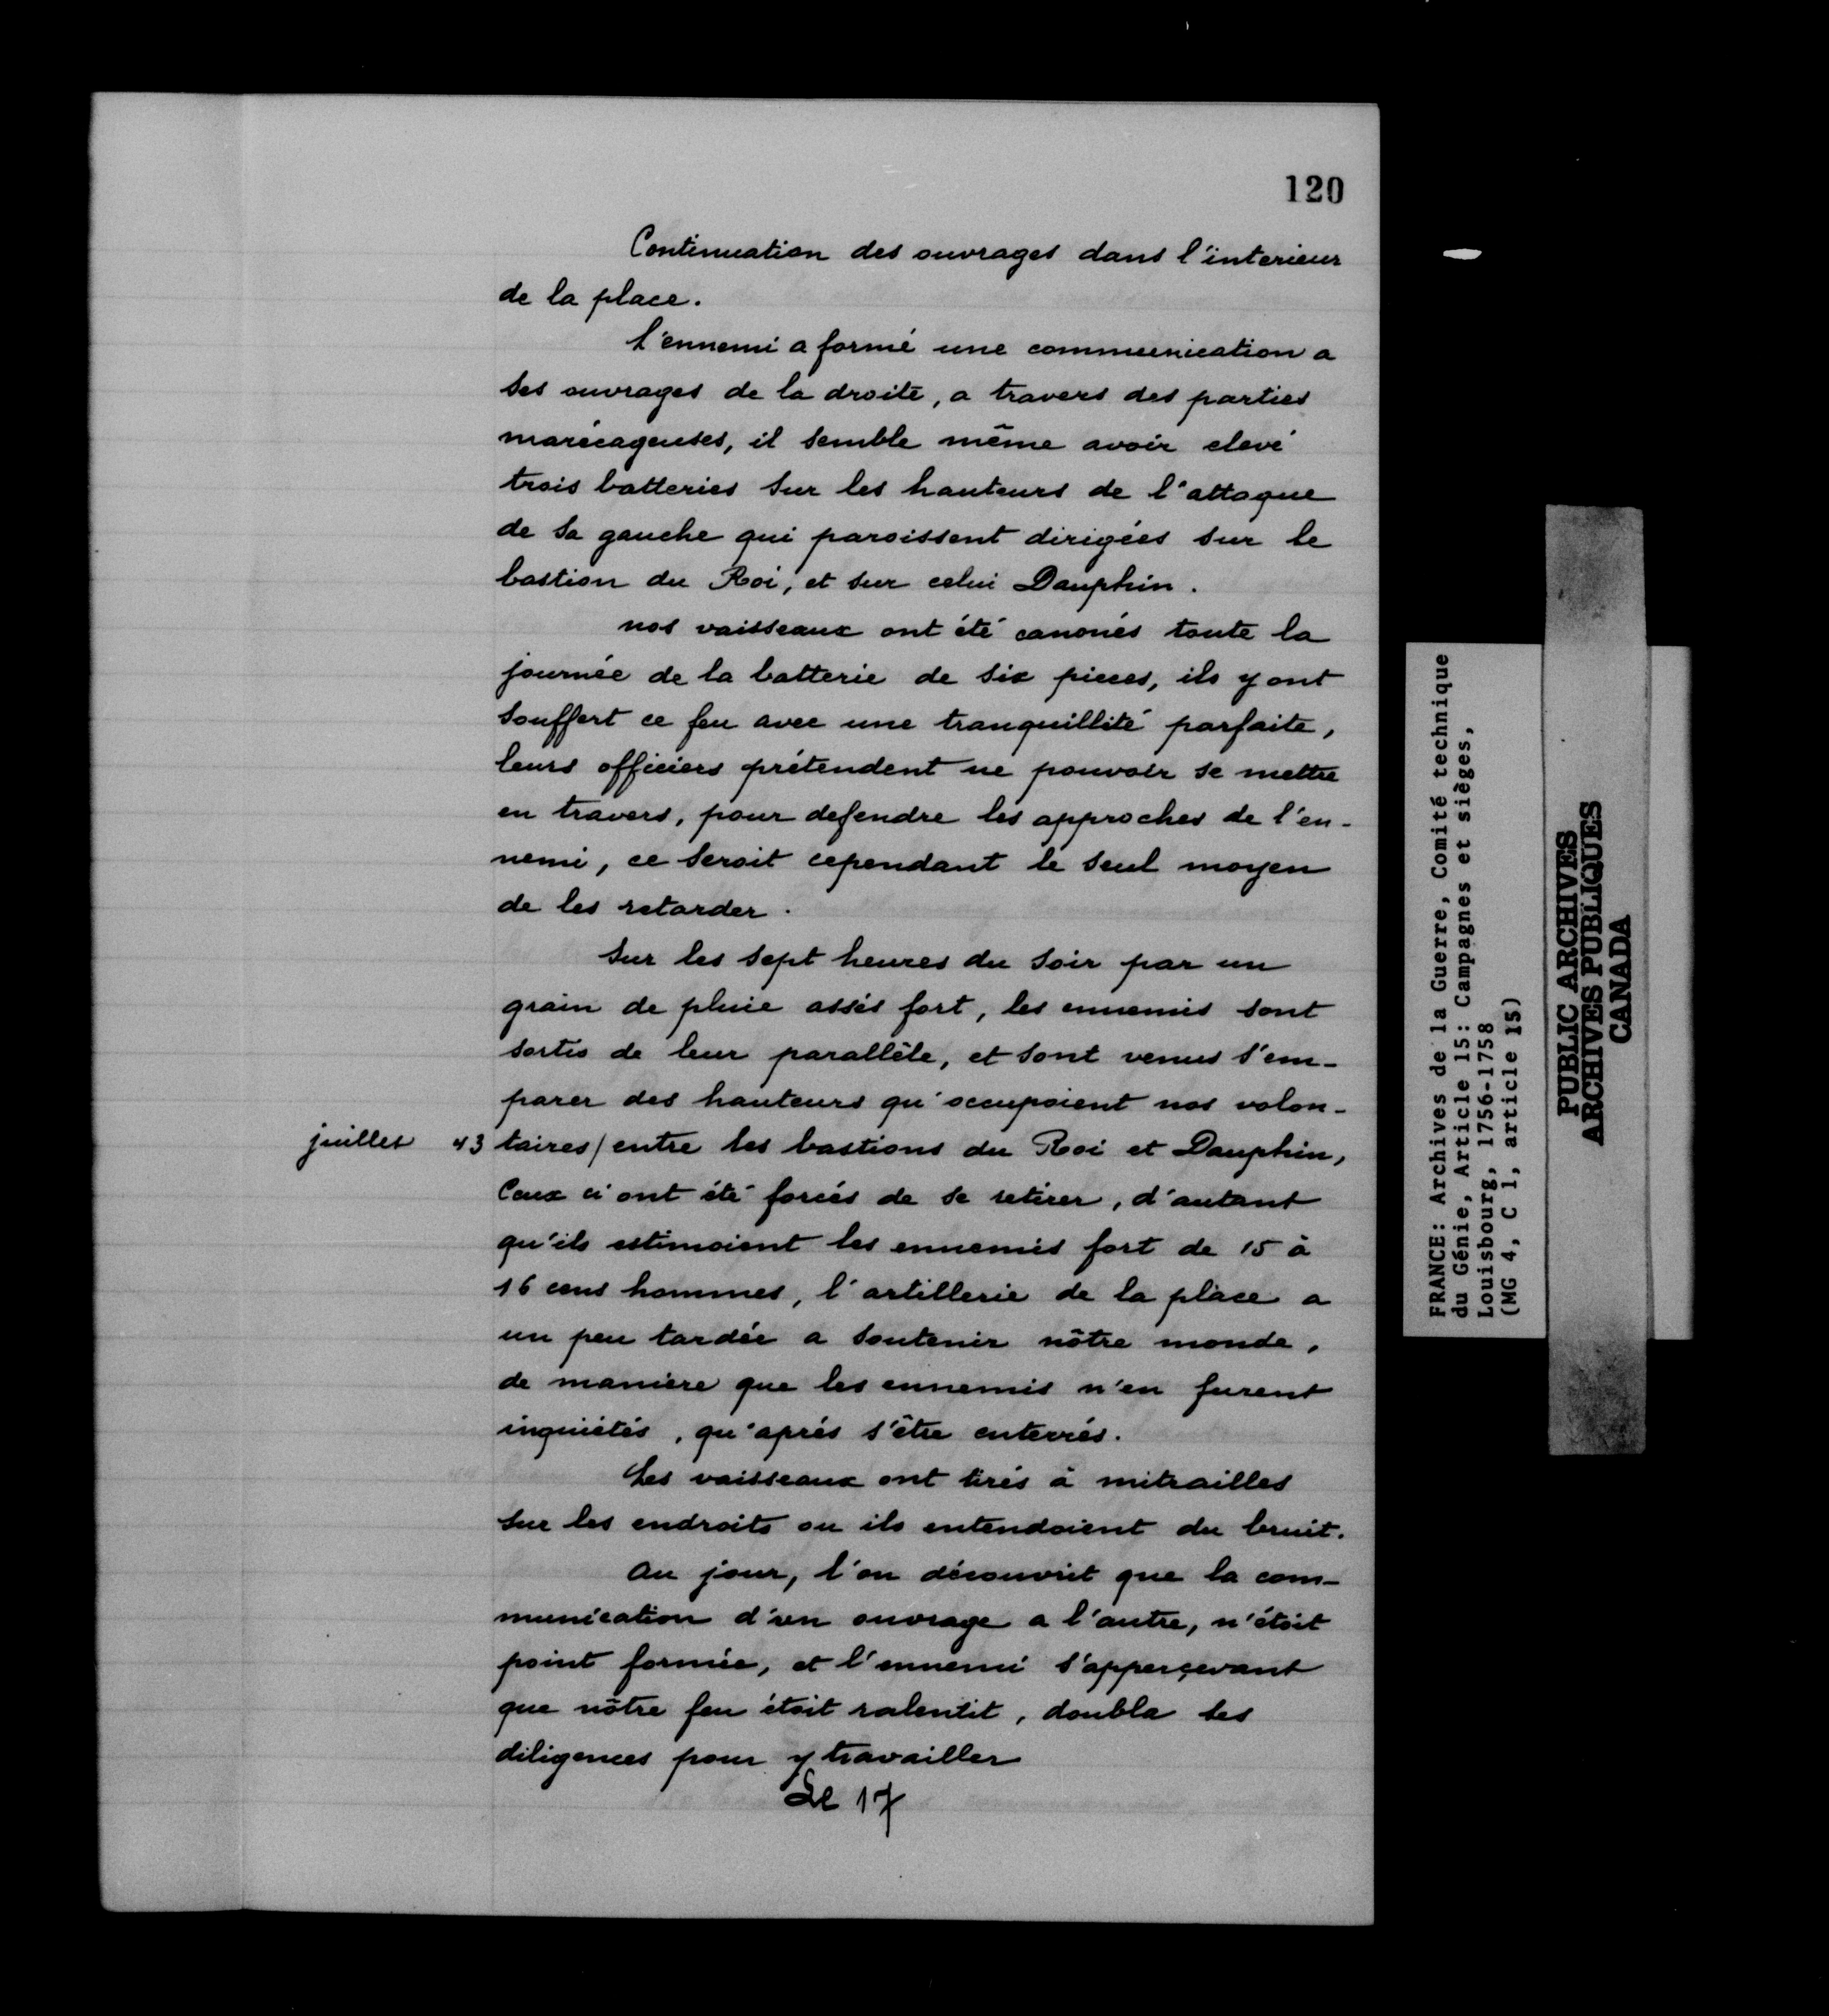 120
Continuation des ouvrages dans l'interieur
de la place.
L'ennemi a formé une communication a
ses ouvrages de la droite, a travers des parties
marécageuses, il semble même avoir elevé
trois batteries sur les hauteurs de l'attaque
de sa gauche qui paroissent dirigées sur le
bastion du Roi, et sur celui Dauphin.
nos vaisseaux ont été canonés toute la
journée de la batterie de six pieces, ils y ont
souffert ce feu avec une tranquillité parfaite,
leurs officiers prétendent ne pouvoir se mettre
en travers, pour defendre les approches de l'en-
nemi, ce seroit cependant le seul moyen
de les retarder.
Sur les sept heures du soir par un
grain de pluie assés fort, les ennemis sont
sortis de leur parallèle, et sont venus s'em-
parer des hauteurs qu'occupoient nos volon-
juillet 43 taires/ entre les bastions du Roi et Dauphin,
Ceux ci ont été forcés de se retirer, d'autant
qu'ils estimoient les ennemis fort de 15 à
16 cens hommes, l'artillerie de la place a
un peu tardée a soutenir nôtre monde,
de maniere que les ennemis n'en furent
inquiétés, qu'aprés s'être enterrés.
Les vaisseaux ont tirés à mitrailles
sur les endroits ou ils entendoient du bruit.
Au jour, l'on découvrit que la com-
munication d'un ouvrage a l'autre, n'étoit
point formée, et l'ennemi s'apperçevant
que nôtre feu étoit ralentit, doubla ses
diligences pour y travailler
Le 17
FRANCE: Archives de la Guerre, Comité technique
du Génie, Article 15: Campagnes et sièges,
Louisbourg, 1756-1758
(MG 4, C 1, article 15)
PUBLIC ARCHIVES
ARCHIVES PUBLIQUES
CANADA